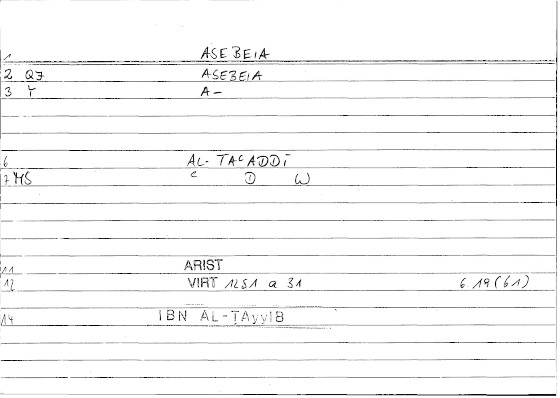 1 ASEBEIA
2 Q7 ASEBEIA
3 T A-
6 AL-TAʿADDĪ
7 MS ʿ D W
11 ARIST
12 VIRT 1251 a 31 6 19 (61)
14 IBN AL-ṬAyyIB